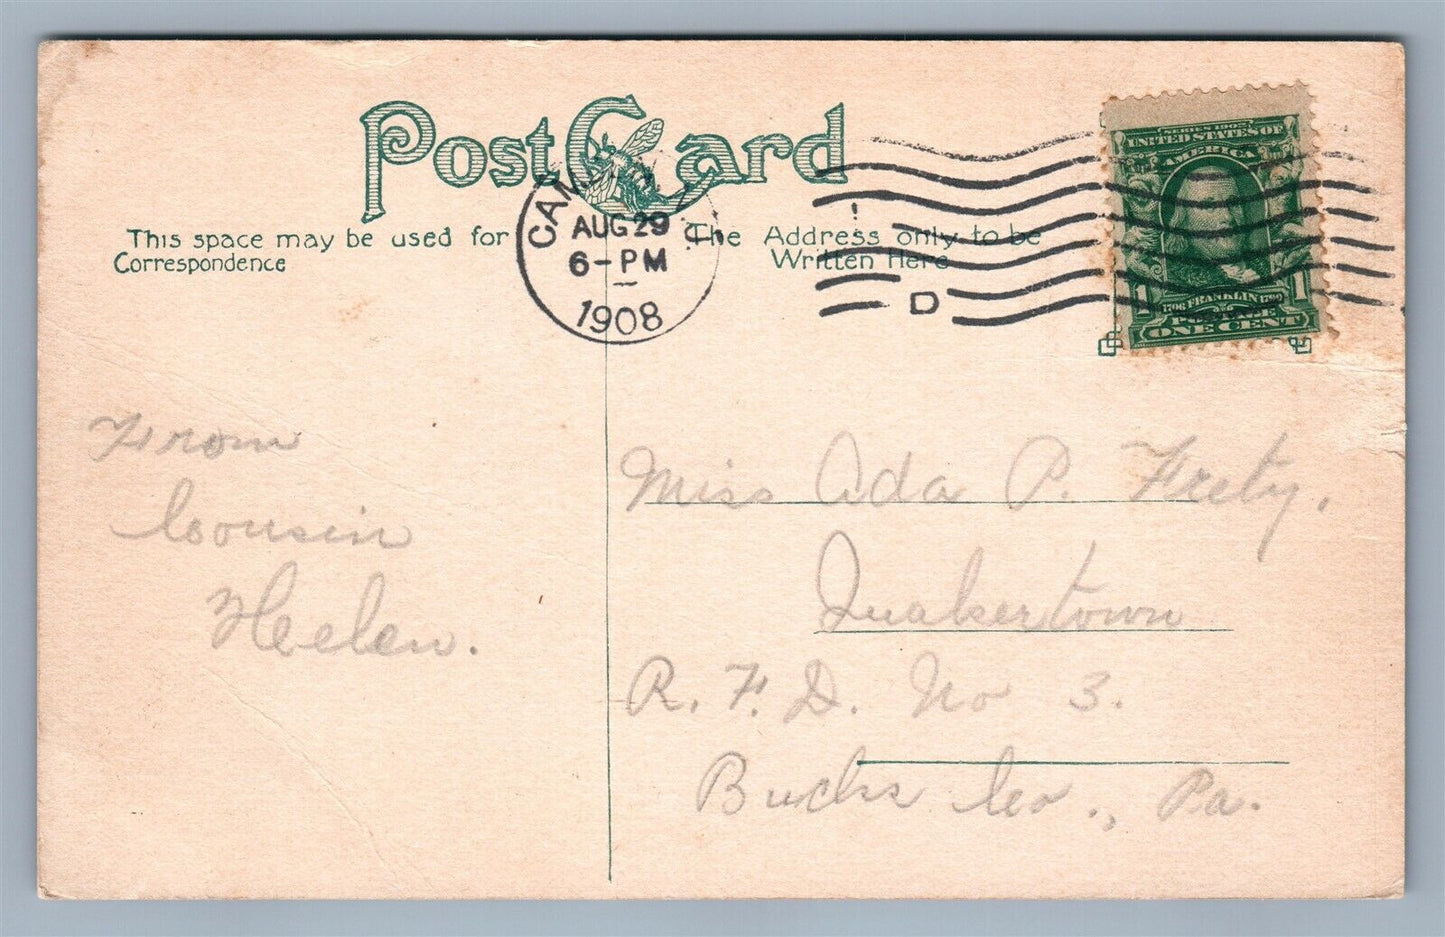 Post Card
This space may be used for
Correspondence
The Address only to be
Written Here
AUG 29
6-PM
1908
D
SERIES 1902
UNITED STATES OF
AMERICA
1 1
1706 FRANKLIN 1790
POSTAGE
ONE CENT
From
Cousin
Helen.
Miss Ada P. Frety.
Quakertown
R. F. D. No 3.
Bucks Co., Pa.